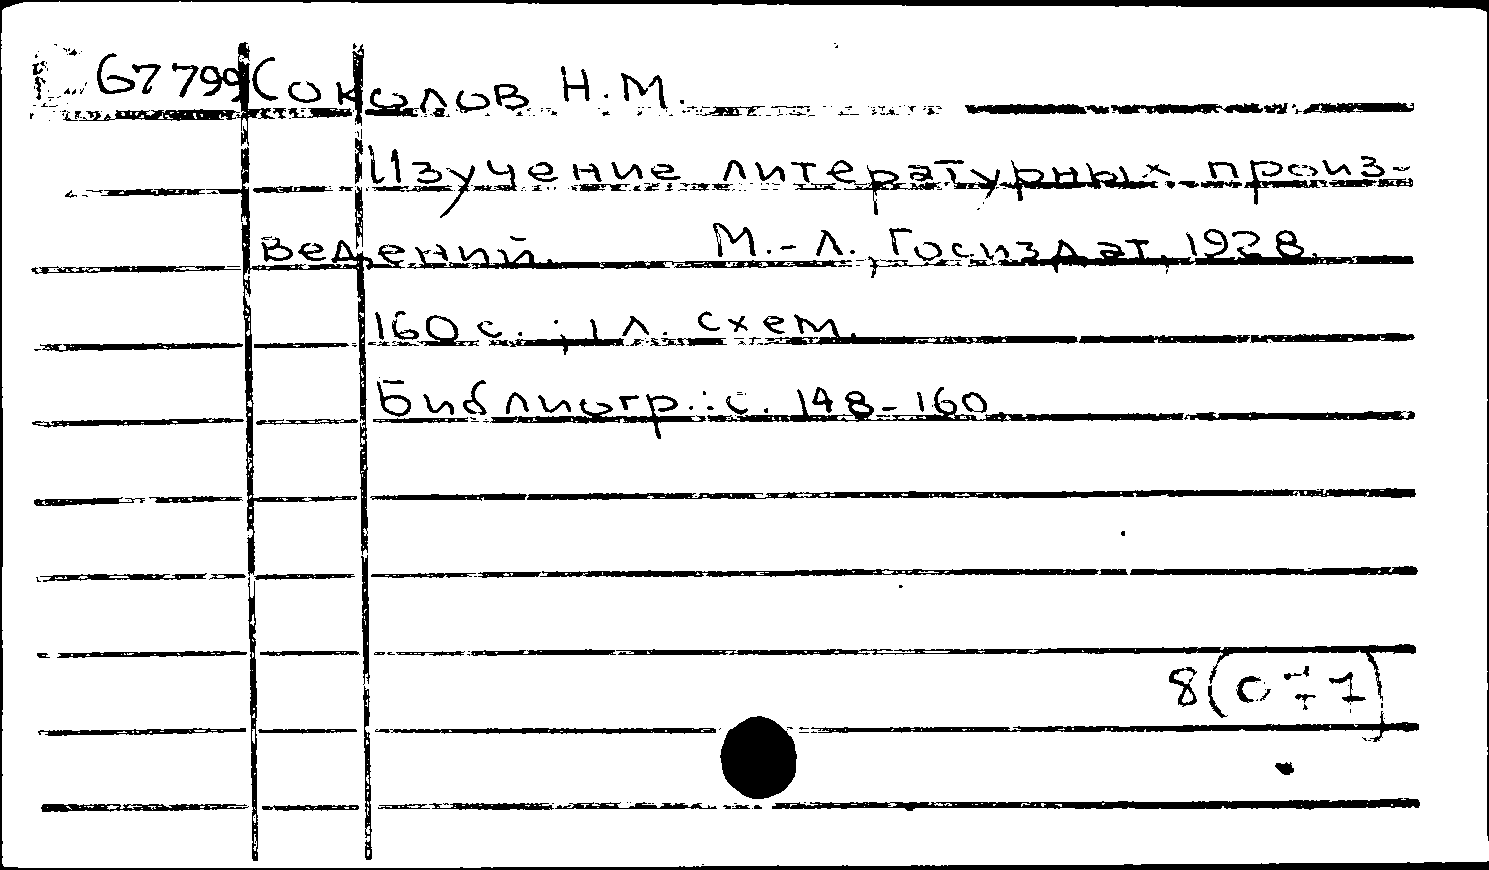 67799 Соколов Н.М.
Изучение литературных произ-
ведений. М.-Л., Госиздат, 1928.
160 с.; 1 л. схем.
Библиогр.: с. 148-160.
8(0